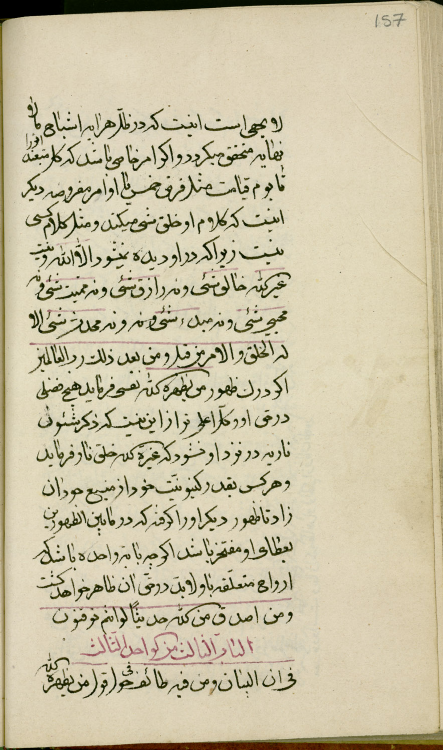 157
لا یحصی است اینست که در ظل هرایه اشباح
نهایه متحقق میگردد واگر امر خاصی باشد که کل متبعند
تا یوم قیامت مثل فرض خمس یا اوامر مفروضه دیگر
اینست که کلام او خلق شئ میکند و مثل کلام کسی
نیست زیرا که در او دیده نمیشود الا الله و نیست
غیر الله خالق شئی ونه رازق شئی ونه ممیت شئی ونه
محیی شئی ونه مبدء شئی ونه ونه محدث شئی الا
له الخلق والامر من قبل ومن بعد ذلك رب العالمین
اگر درك ظهور من یظهره الله نفسی فرماید هیچ فضلی
در حق او در کل اعلی تر از این نیست که ذکر شئون
ناریه در نزد او نشود که غیره الله خلق نار فرماید
و هرکس بقدر رکینونیت خود از منبع جود ان
زاد تا ظهور دیگر اورا کرفته که در مابین الظهورین
بعطای او مفتخر باشد اگرچه بایه واحده باشد که
ارواح متعلقه باو لابد در حق ان ظاهر خواهد گشت
ومن اصدق من الله حدیثا لو انتم توقنون
الباب الثالث من الواحد الثالث
فی ان البیان ومن فیه طائف فی حول قول من یظهره الله